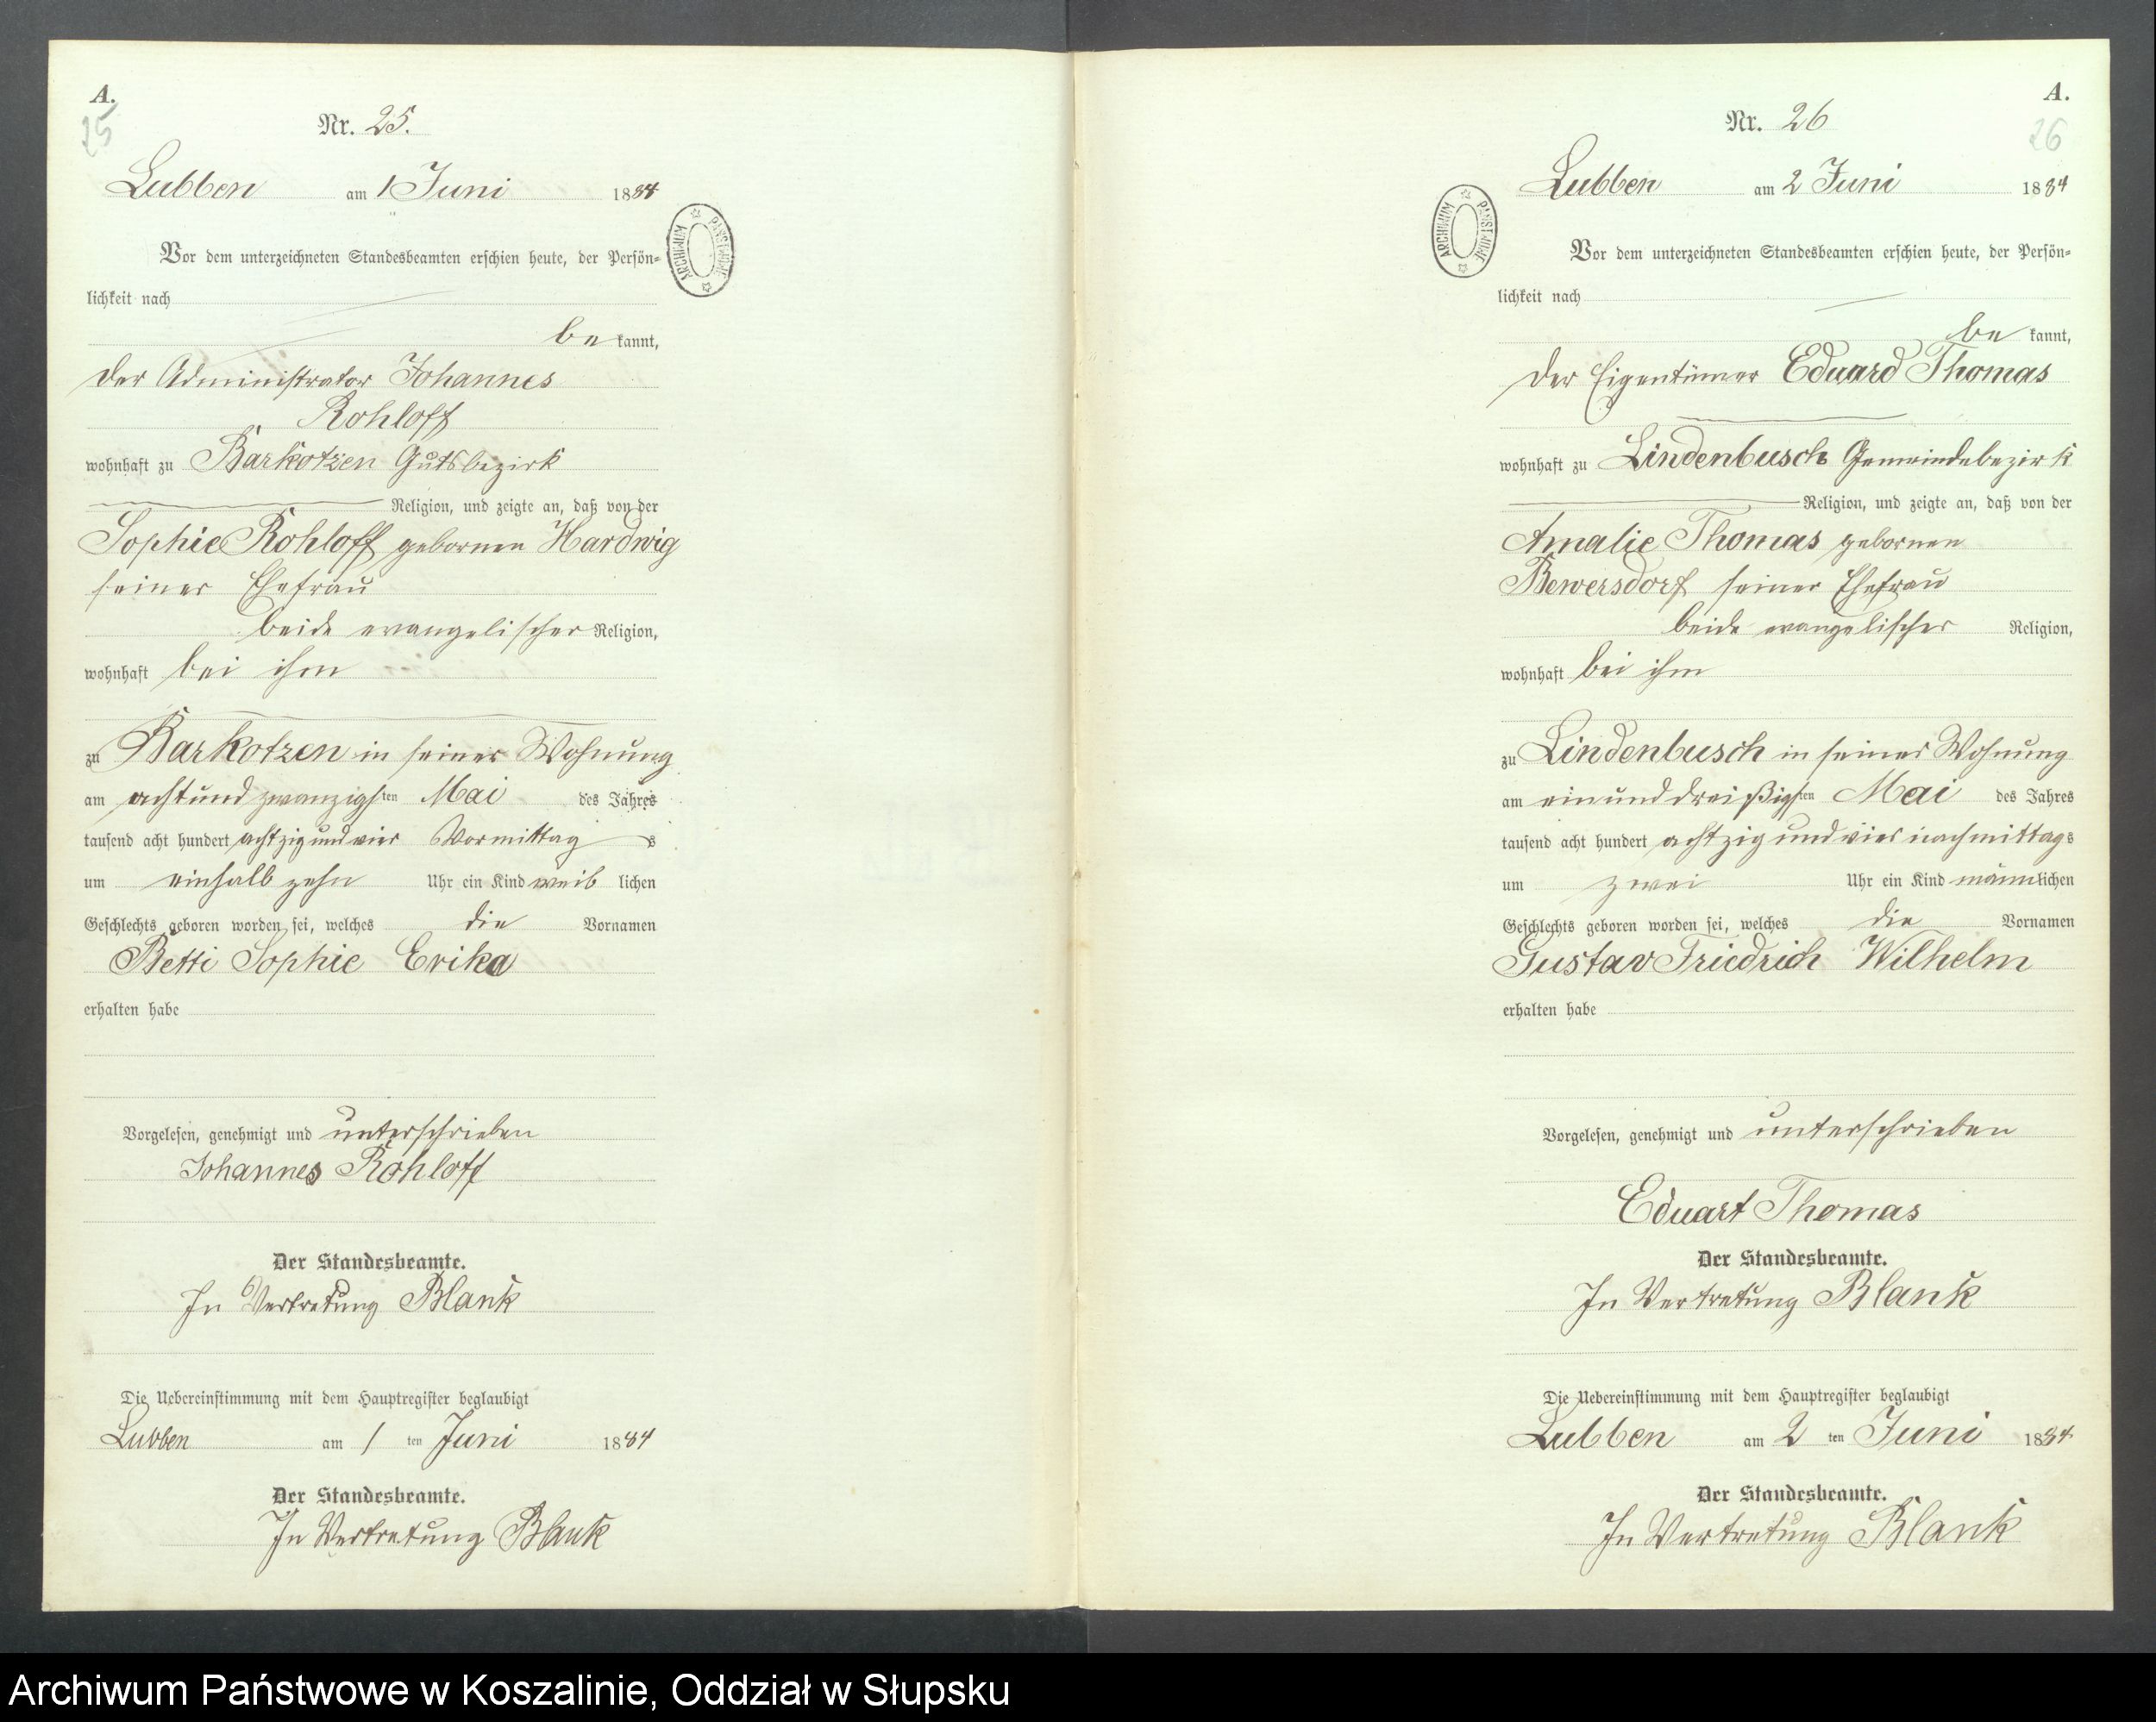 A.
25
Nr. 25.
Lubben am 1 Juni 1884
Vor dem unterzeichneten Standesbeamten erschien heute, der Persön-
lichkeit nach
be kannt,
der Administrator Johannes
Rohloff
wohnhaft zu Barkotzen Gutsbezirk
Religion, und zeigte an, daß von der
Sophie Rohloff gebornen Hardwig
seiner Ehefrau
beide evangelischer Religion,
wohnhaft bei ihm
zu Barkotzen in seiner Wohnung
am achtundzwanzigsten Mai des Jahres
tausend acht hundert achtzig und vier Vormittag s
um einhalb zehn Uhr ein Kind weib lichen
Geschlechts geboren worden sei, welches die Vornamen
Betti Sophie Erika
erhalten habe
Vorgelesen, genehmigt und unterschrieben
Johannes Rohloff
Der Standesbeamte.
In Vertretung Blank
Die Uebereinstimmung mit dem Hauptregister beglaubigt
Lubben am 1 ten Juni 1884
Der Standesbeamte.
In Vertretung Blank
ARCHIWUM PAŃSTWOWE
A.
26
Nr. 26
Lubben am 2 Juni 1884
ARCHIWUM PAŃSTWOWE
Vor dem unterzeichneten Standesbeamten erschien heute, der Persön-
lichkeit nach
be kannt,
der Eigentümer Eduard Thomas
wohnhaft zu Lindenbusch Gemeindebezirk
Religion, und zeigte an, daß von der
Amalie Thomas gebornen
Bewersdorf seiner Ehefrau
beide evangelischer Religion,
wohnhaft bei ihm
zu Lindenbusch in seiner Wohnung
am einunddreißigsten Mai des Jahres
tausend acht hundert achtzig und vier nachmittags
um zwei Uhr ein Kind männlichen
Geschlechts geboren worden sei, welches die Vornamen
Gustav Friedrich Wilhelm
erhalten habe
Vorgelesen, genehmigt und unterschrieben
Eduart Thomas
Der Standesbeamte.
In Vertretung Blank
Die Uebereinstimmung mit dem Hauptregister beglaubigt
Lubben am 2 ten Juni 1884
Der Standesbeamte.
In Vertretung Blank
Archiwum Państwowe w Koszalinie, Oddział w Słupsku